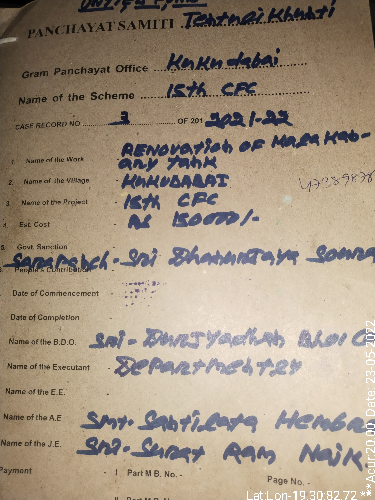 UNTIED FUND
PANCHAYAT SAMITI Tentuli Khunti
Gram Panchayat Office KuKudabai
Name of the Scheme 15th CFC
CASE RECORD NO 3 OF 201 2021-22
1. Name of the Work RENOVATION OF
any TANK
2. Name of the Village KUKUDABAI
3. Name of the Project 15th CFC
4. Est. Cost RS 150000/-
5. Govt. Sanction
Sarapanch - Sri
6. People's Contribution
Date of Commencement
Date of Completion
Name of the B.D.O. Sri -
Name of the Executant DEPARTMENTELY
Name of the E.E.
Name of the A.E Smt. Santilata HEMBR
Name of the J.E. Sri - Surat Ram Naik
Payment - I Part M B. No. - Page No. -
II Part M B. No.
Lat Lon-19.30:82.72
***Acur 20.00, Date 23-05-2022